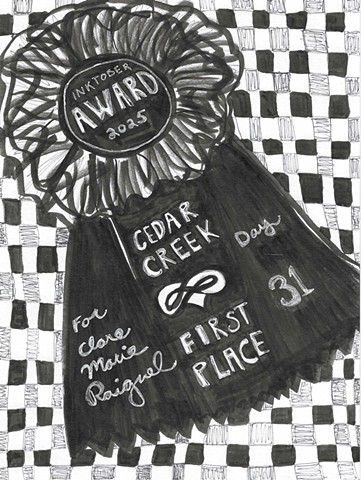 INKTOBER
AWARD
2025
CEDAR
CREEK
Day
31
FIRST
PLACE
For
Clare
Marie
Raiguel